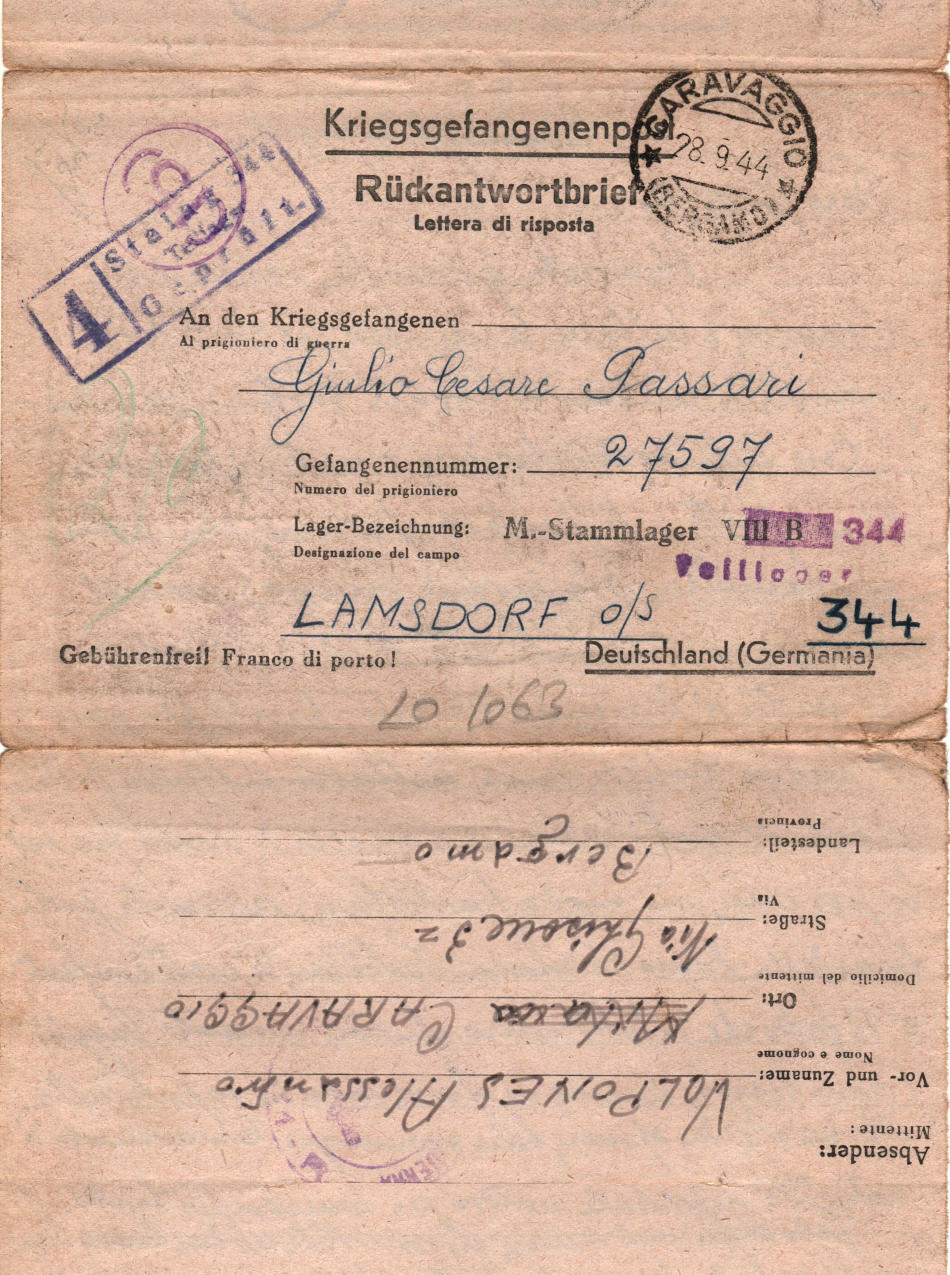 CARAVAGGIO
28.9.44
(BERGAMO)
Kriegsgefangenenpost
Rückantwortbrief
Lettera di risposta
4
Stalag 344
Geprüft.
An den Kriegsgefangenen
Al prigioniero di guerra
Giulio Cesare Passari
Gefangenennummer: 27597
Numero del prigioniero
Lager-Bezeichnung: M.-Stammlager VIII B 344
Designazione del campo
Teillager
LAMSDORF o/s 344
Gebührenfrei! Franco di porto! Deutschland (Germania)
Absender:
Mittente:
Vor- und Zuname: VOLPONES Alessandro
Nome e cognome
Ort: Milano CARAVAGGIO
Domicilio del mittente
Straße: Via Ghisone 32
Via
Landesteil: Bergamo
Provincia